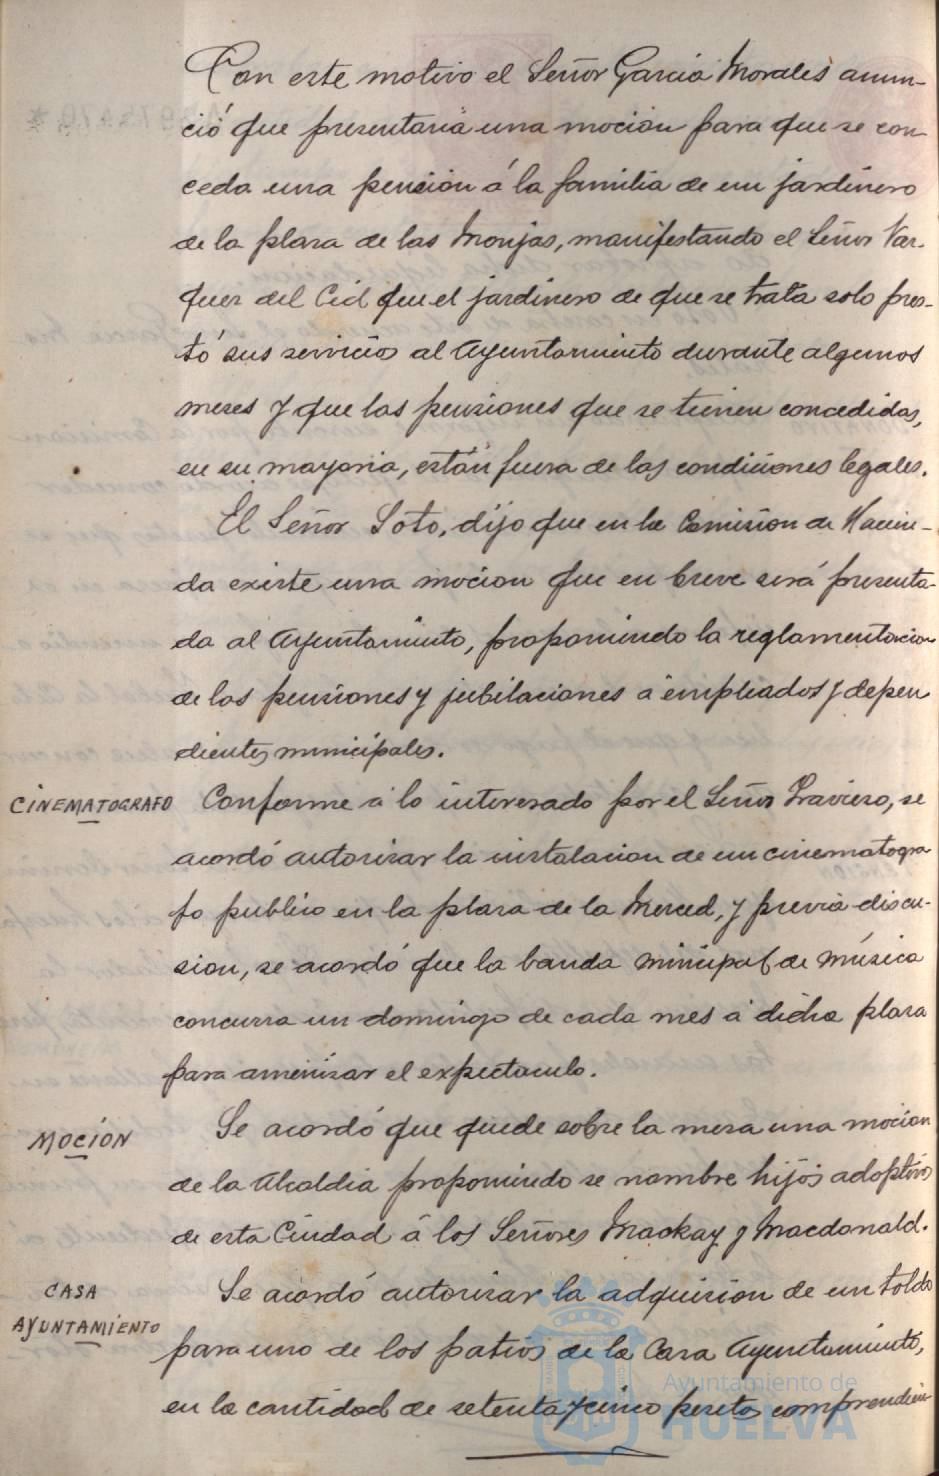 Con este motivo el Señor García Morales anun-
ció que presentaria una mocion para que se con-
ceda una pension á la familia de un jardinero
de la plaza de las Monjas, manifestando el Señor Vaz-
quez del Cid que el jardinero de que se trata solo pres-
tó sus servicios al Ayuntamiento durante algunos
meses y que las pensiones que se tienen concedidas,
en su mayoria, están fuera de las condiciones legales.
El Señor Soto, dijo que en la Comision de Hacien-
da existe una mocion que en breve será presenta-
da al Ayuntamiento, proponiendo la reglamentacion
de las pensiones y jubilaciones á empleados y depen
dientes municipales.
CINEMATOGRAFO Conforme á lo interesado por el Señor Travieso, se
acordó autorizar la instalacion de un cinematogra
fo publico en la plaza de la Merced, y previa discu-
sion, se acordó que la banda municipal de música
concurra un domingo de cada mes á dicha plaza
para amenizar el espectaculo.
MOCIÓN Se acordó que quede sobre la mesa una mocion
de la Alcaldia proponiendo se nombre hijos adoptivos
de esta Ciudad á los Señores Mackay y Macdonald.
CASA AYUNTAMIENTO Se acordó autorizar la adquision de un toldo
para uno de los patios de la Casa Ayuntamiento,
en la cantidad de setenta y cinco pesetas comprendien
Ayuntamiento de
HUELVA